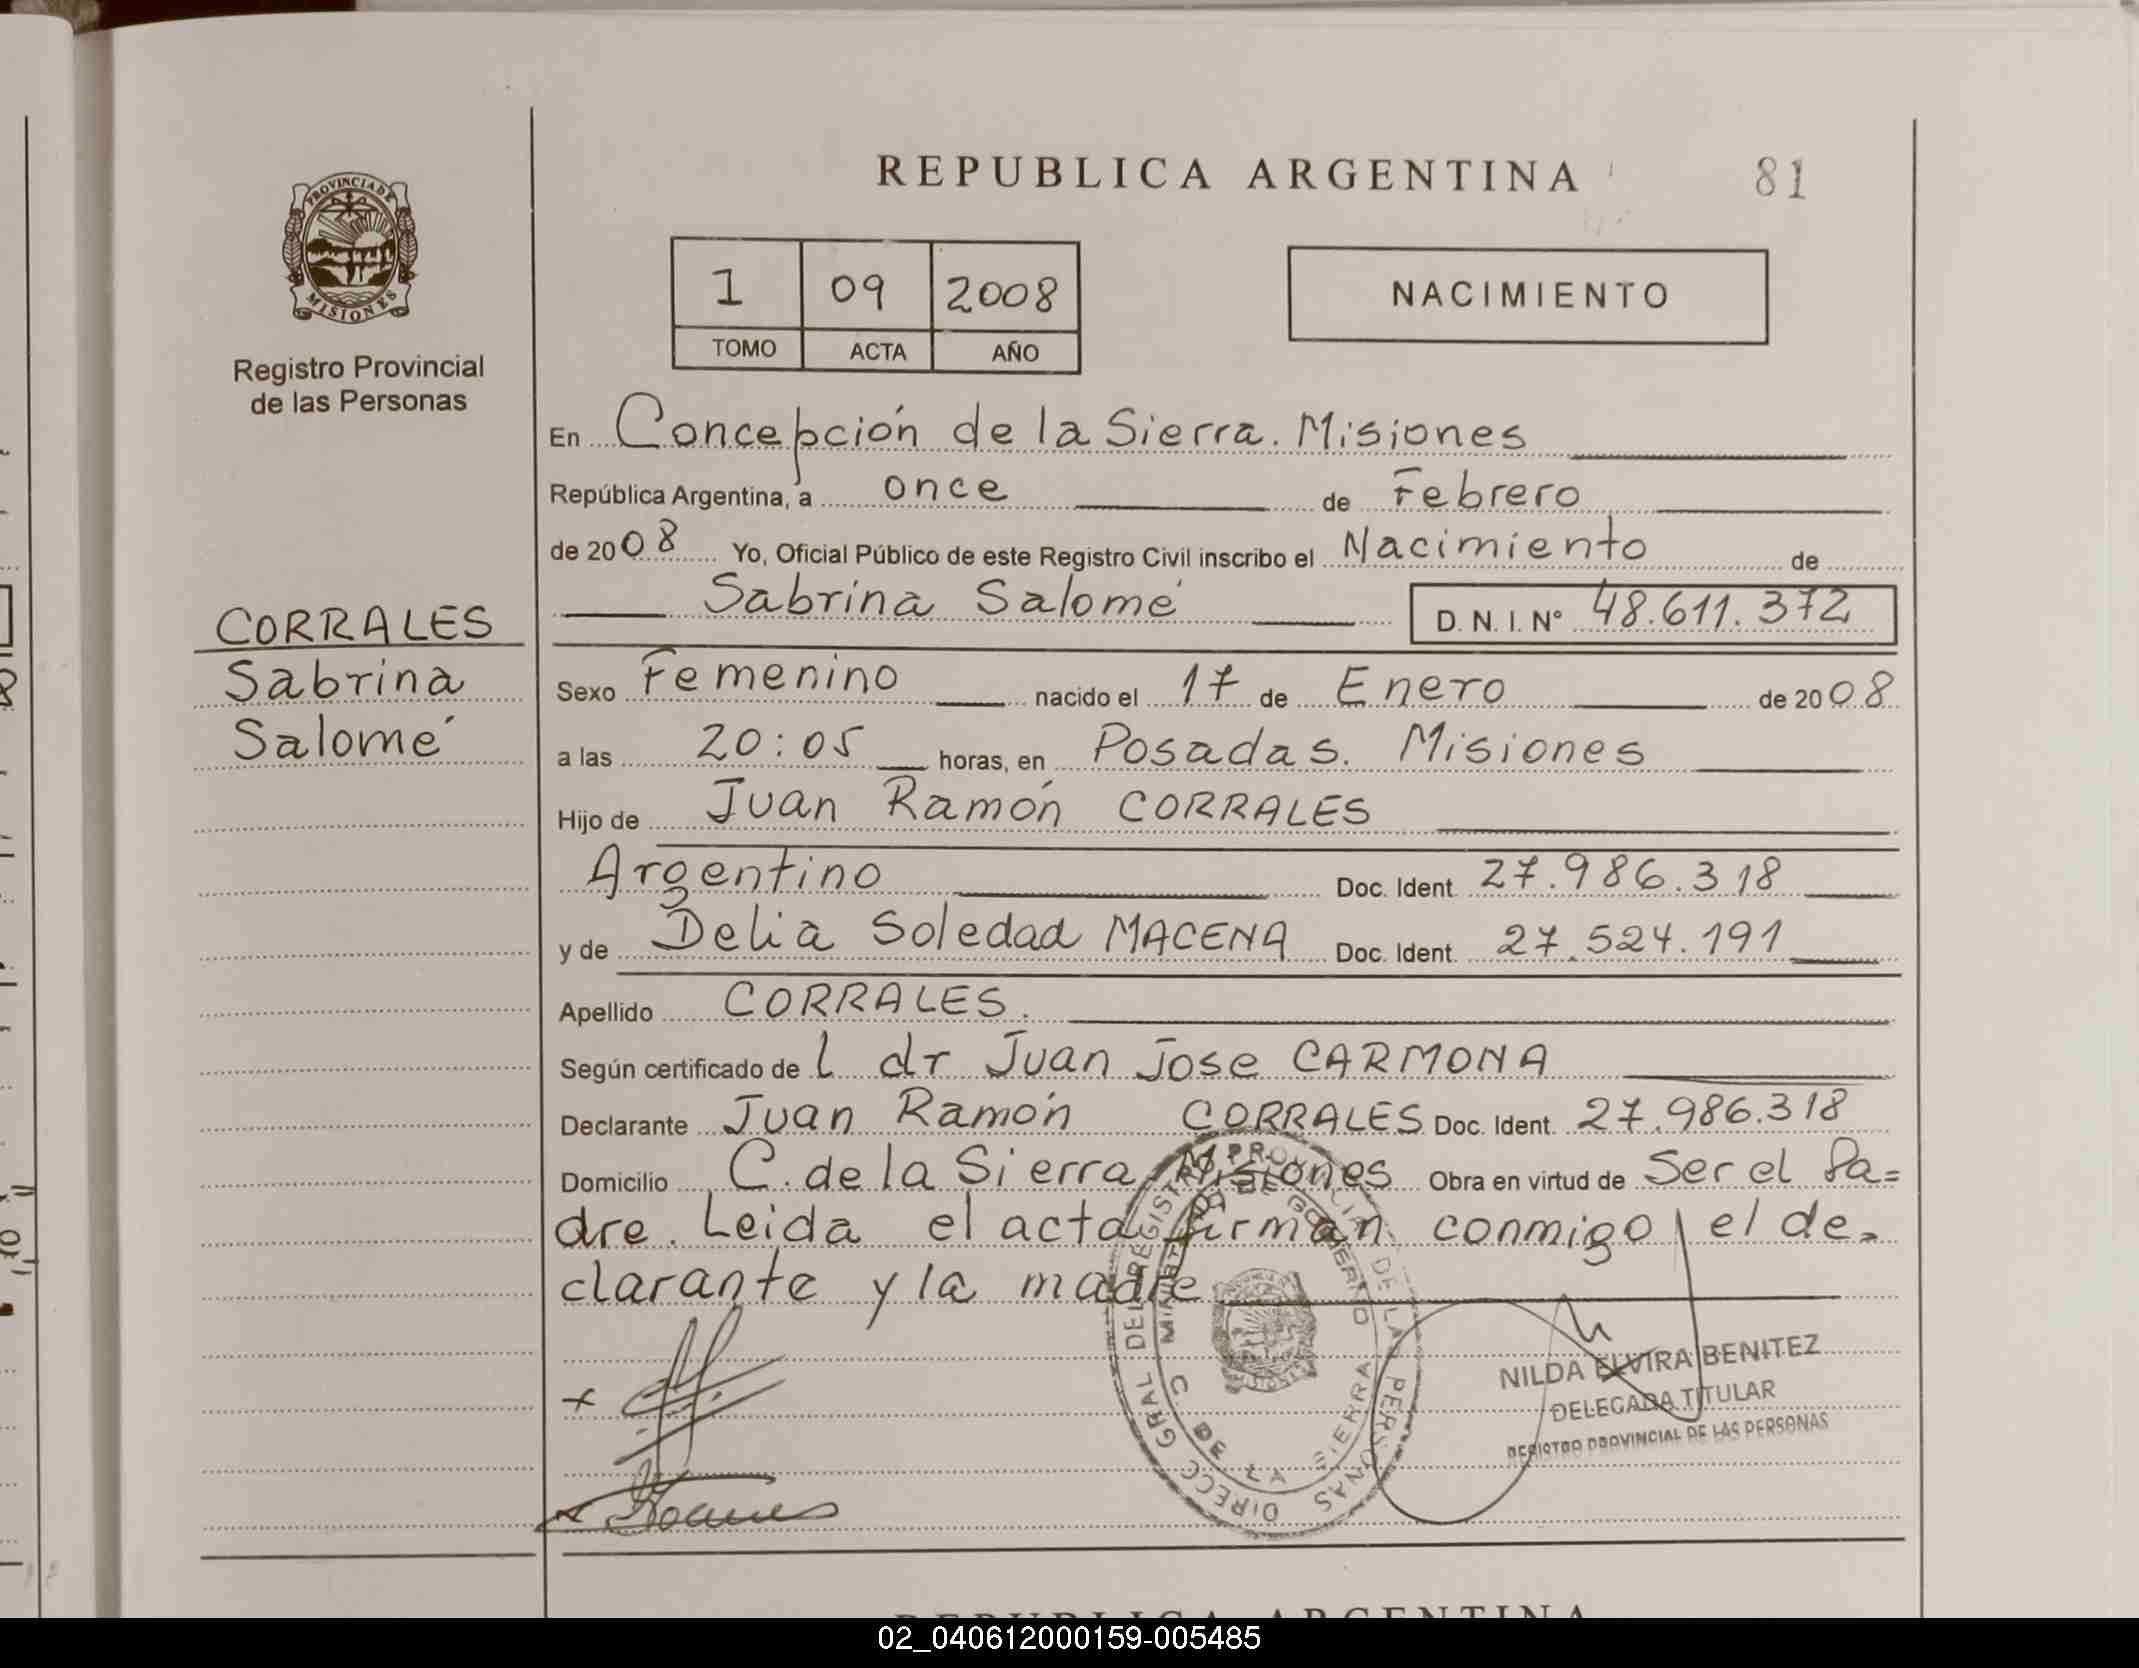 REPUBLICA ARGENTINA
81
PROVINCIA DE
MISIONES
Registro Provincial
de las Personas
1 09 2008
TOMO ACTA AÑO
NACIMIENTO
En Concepción de la Sierra. Misiones
República Argentina, a once de Febrero
de 2008 Yo, Oficial Público de este Registro Civil inscribo el Nacimiento de
Sabrina Salomé D. N. I. N° 48.611.372
CORRALES
Sabrina
Salomé
Sexo Femenino nacido el 17 de Enero de 2008
a las 20:05 horas, en Posadas. Misiones
Hijo de Juan Ramón CORRALES
Argentino Doc. Ident. 27.986.318
y de Delia Soledad MACENA Doc. Ident. 27.524.191
Apellido CORRALES.
Según certificado de l dr Juan Jose CARMONA
Declarante Juan Ramón CORRALES Doc. Ident. 27.986.318
Domicilio C. de la Sierra Misiones Obra en virtud de Ser el Pa=
dre. Leida el acta firman conmigo el de=
clarante y la madre
DIRECC GRAL DEL REGISTRO PROVINCIAL DE LAS PERSONAS
MINISTERIO DE GOBIERNO
C. DE LA SIERRA
NILDA ELVIRA BENITEZ
DELEGADA TITULAR
REGISTRO PROVINCIAL DE LAS PERSONAS
REPUBLICA ARGENTINA
02_040612000159-005485